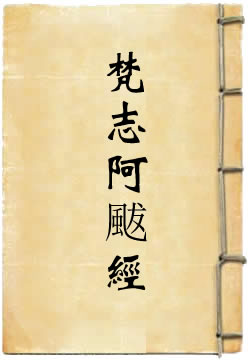 梵志阿颰經